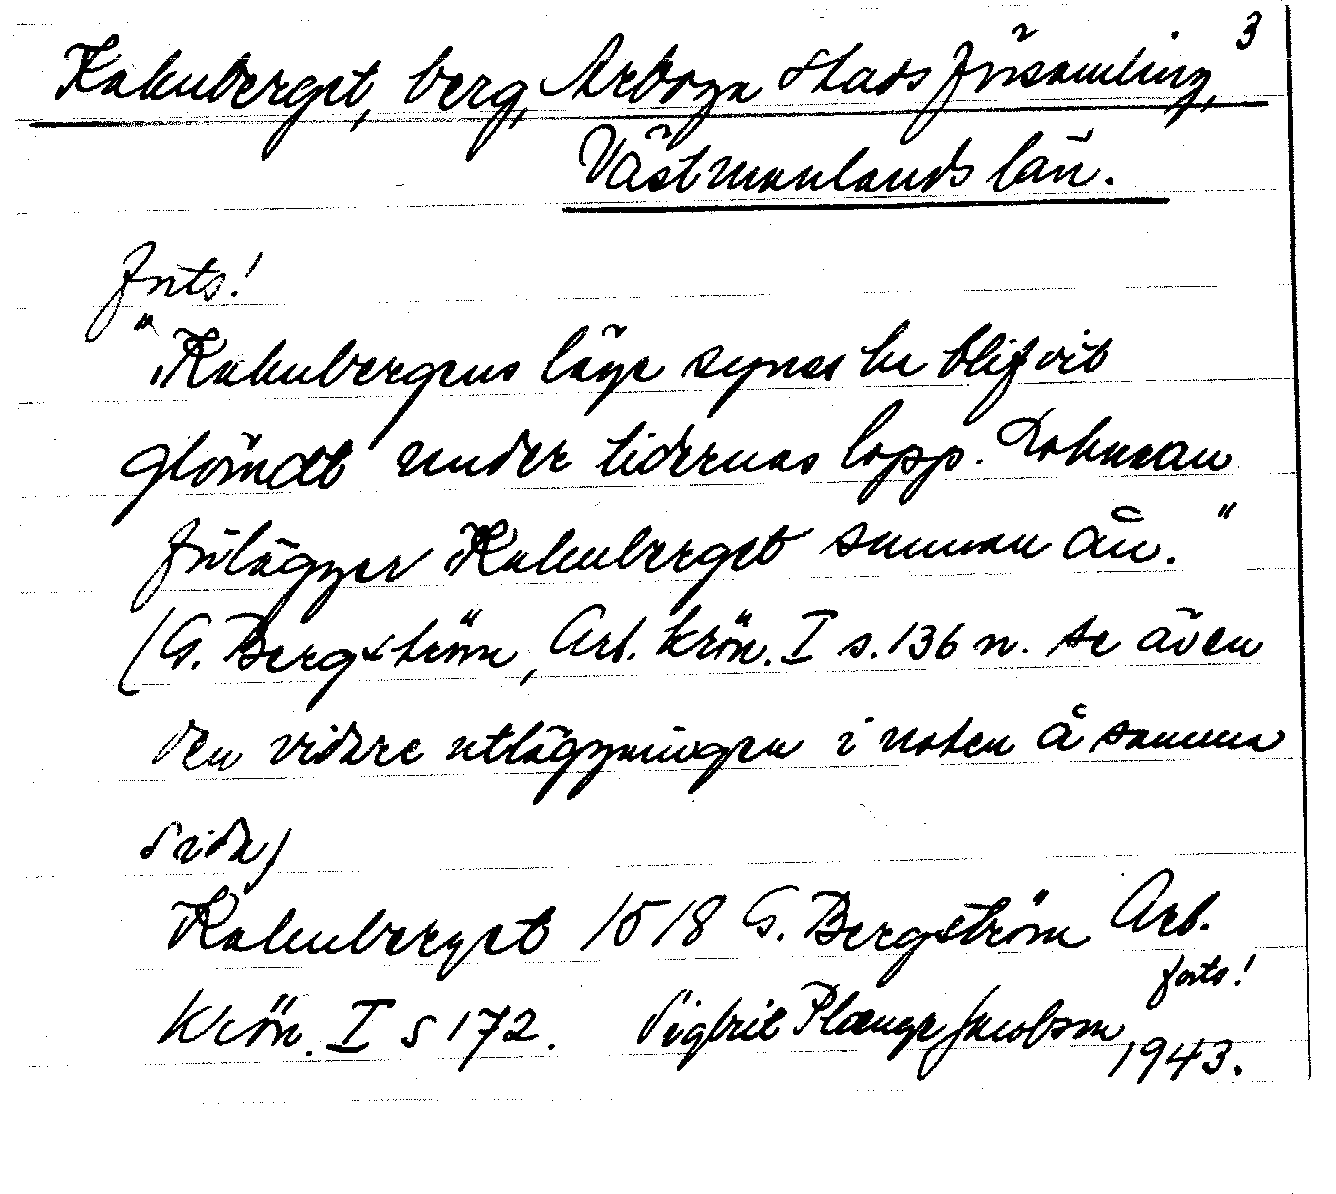 3
Kakuberget, berg, Arboga stads församling,
Västmanlands län.
forts!
"Kakubergens läge synes ha blifvit
glömdt under tidernas lopp. Lohman
förlägger Kakuberget sunnan ån."
(G. Bergström, Arb. krön. I s. 136 n. se även
den vidare utläggningen i noten å samma
sida)
Kakuberget 1518 G. Bergström Arb.
Krön. I s 172. Sigbrit Plænge Jacobson
forts!
1943.